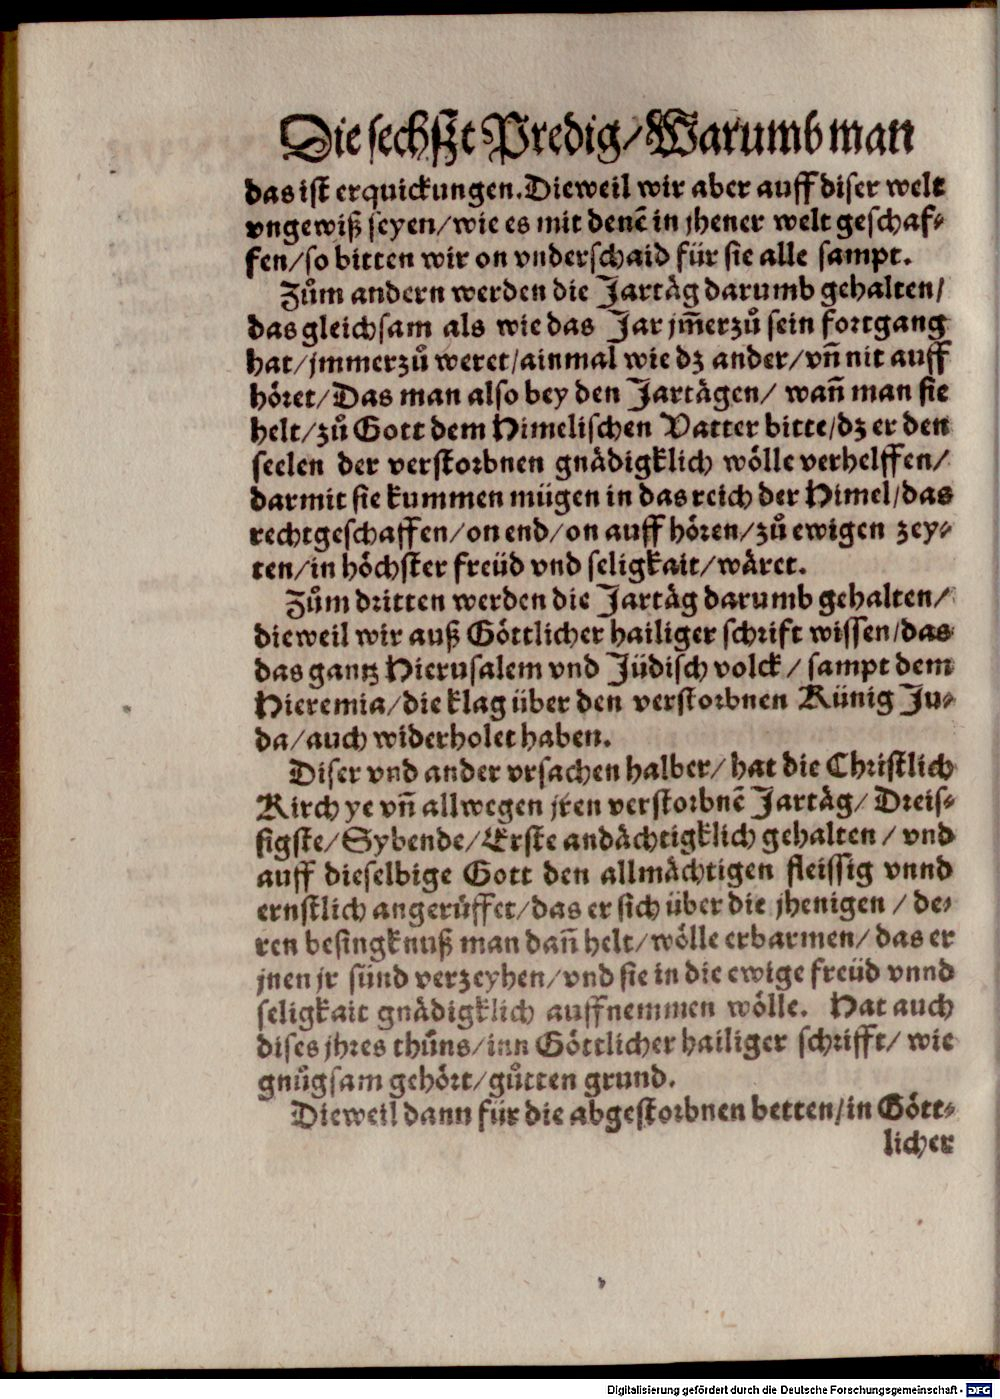 Die sechſzt Predig/Warumb man
das iſt erquickungen. Dieweil wir aber auff diſer welt
vngewiß ſeyen/wie es mit denē in jhener welt geſchaf⸗
fen/ſo bitten wir on vnderſchaid für ſie alle ſampt.
Zům andern werden die Jartäg darumb gehalten/
das gleichſam als wie das Jar jm̄erzů ſein fortgang
hat/jmmerzů weret/ainmal wie dz ander/vn̄ nit auff
höret/Das man alſo bey den Jartägen/ wan̄ man ſie
helt/zů Gott dem Himeliſchen Vatter bitte/dz er den
ſeelen der verſtorbnen gnädigklich wölle verhelffen/
darmit ſie kummen mügen in das reich der Himel/das
rechtgeſchaffen/on end/on auff hören/zů ewigen zey⸗
ten/in höchſter freüd vnd ſeligkait/wäret.
Zům dritten werden die Jartäg darumb gehalten/
dieweil wir auß Göttlicher hailiger ſchrift wiſſen/das
das gantz Hieruſalem vnd Jüdiſch volck/ ſampt dem
Hieremia/die klag über den verſtorbnen Künig Ju⸗
da/auch widerholet haben.
Diſer vnd ander vrſachen halber/ hat die Chriſtlich
Kirch ye vn̄ allwegen jren verſtorbnē Jartäg/ Dreiſ⸗
ſigſte/Sybende/Erſte andächtigklich gehalten / vnd
auff dieſelbige Gott den allmächtigen fleiſſig vnnd
ernſtlich angerůffet/das er ſich über die jhenigen / de⸗
ren beſingknuß man dan̄ helt/wölle erbarmen/ das er
jnen jr ſünd verzeyhen/vnd ſie in die ewige freüd vnnd
ſeligkait gnädigklich auffnemmen wölle. Hat auch
diſes jhres thůns/inn Göttlicher hailiger ſchrifft/ wie
gnůgſam gehört/gůtten grund.
Dieweil dann für die abgeſtorbnen betten/in Gött⸗
licher
Digitalisierung gefördert durch die Deutsche Forschungsgemeinschaft - DFG